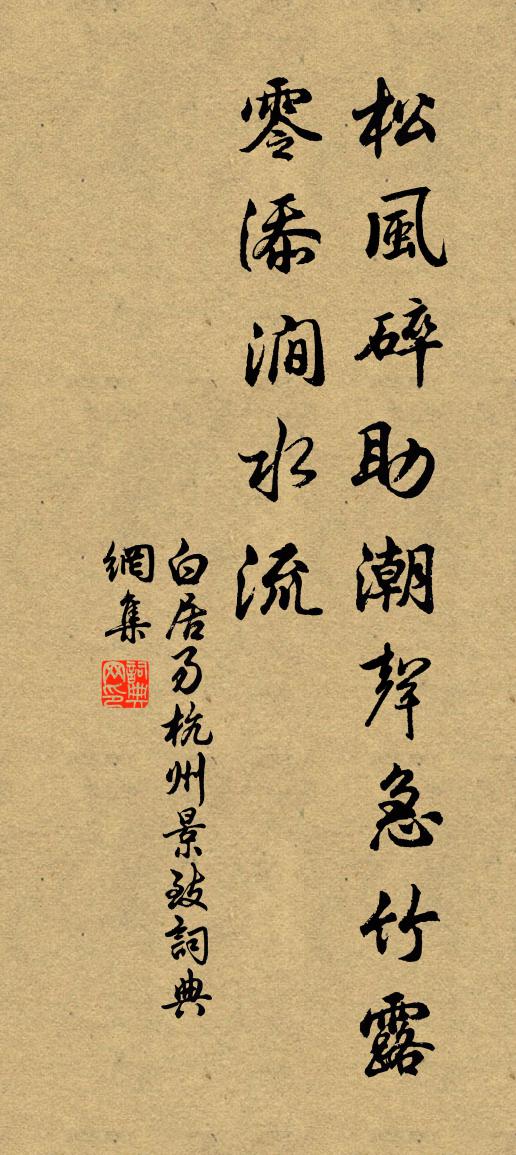 松風碎助潮聲急竹露
零添澗水流
白居易杭州景致詞典
網集
詞典网印